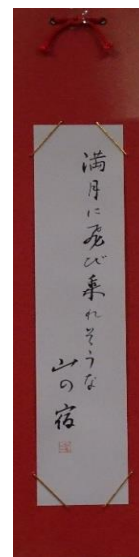 満月に飛び乗れそうな
山の宿